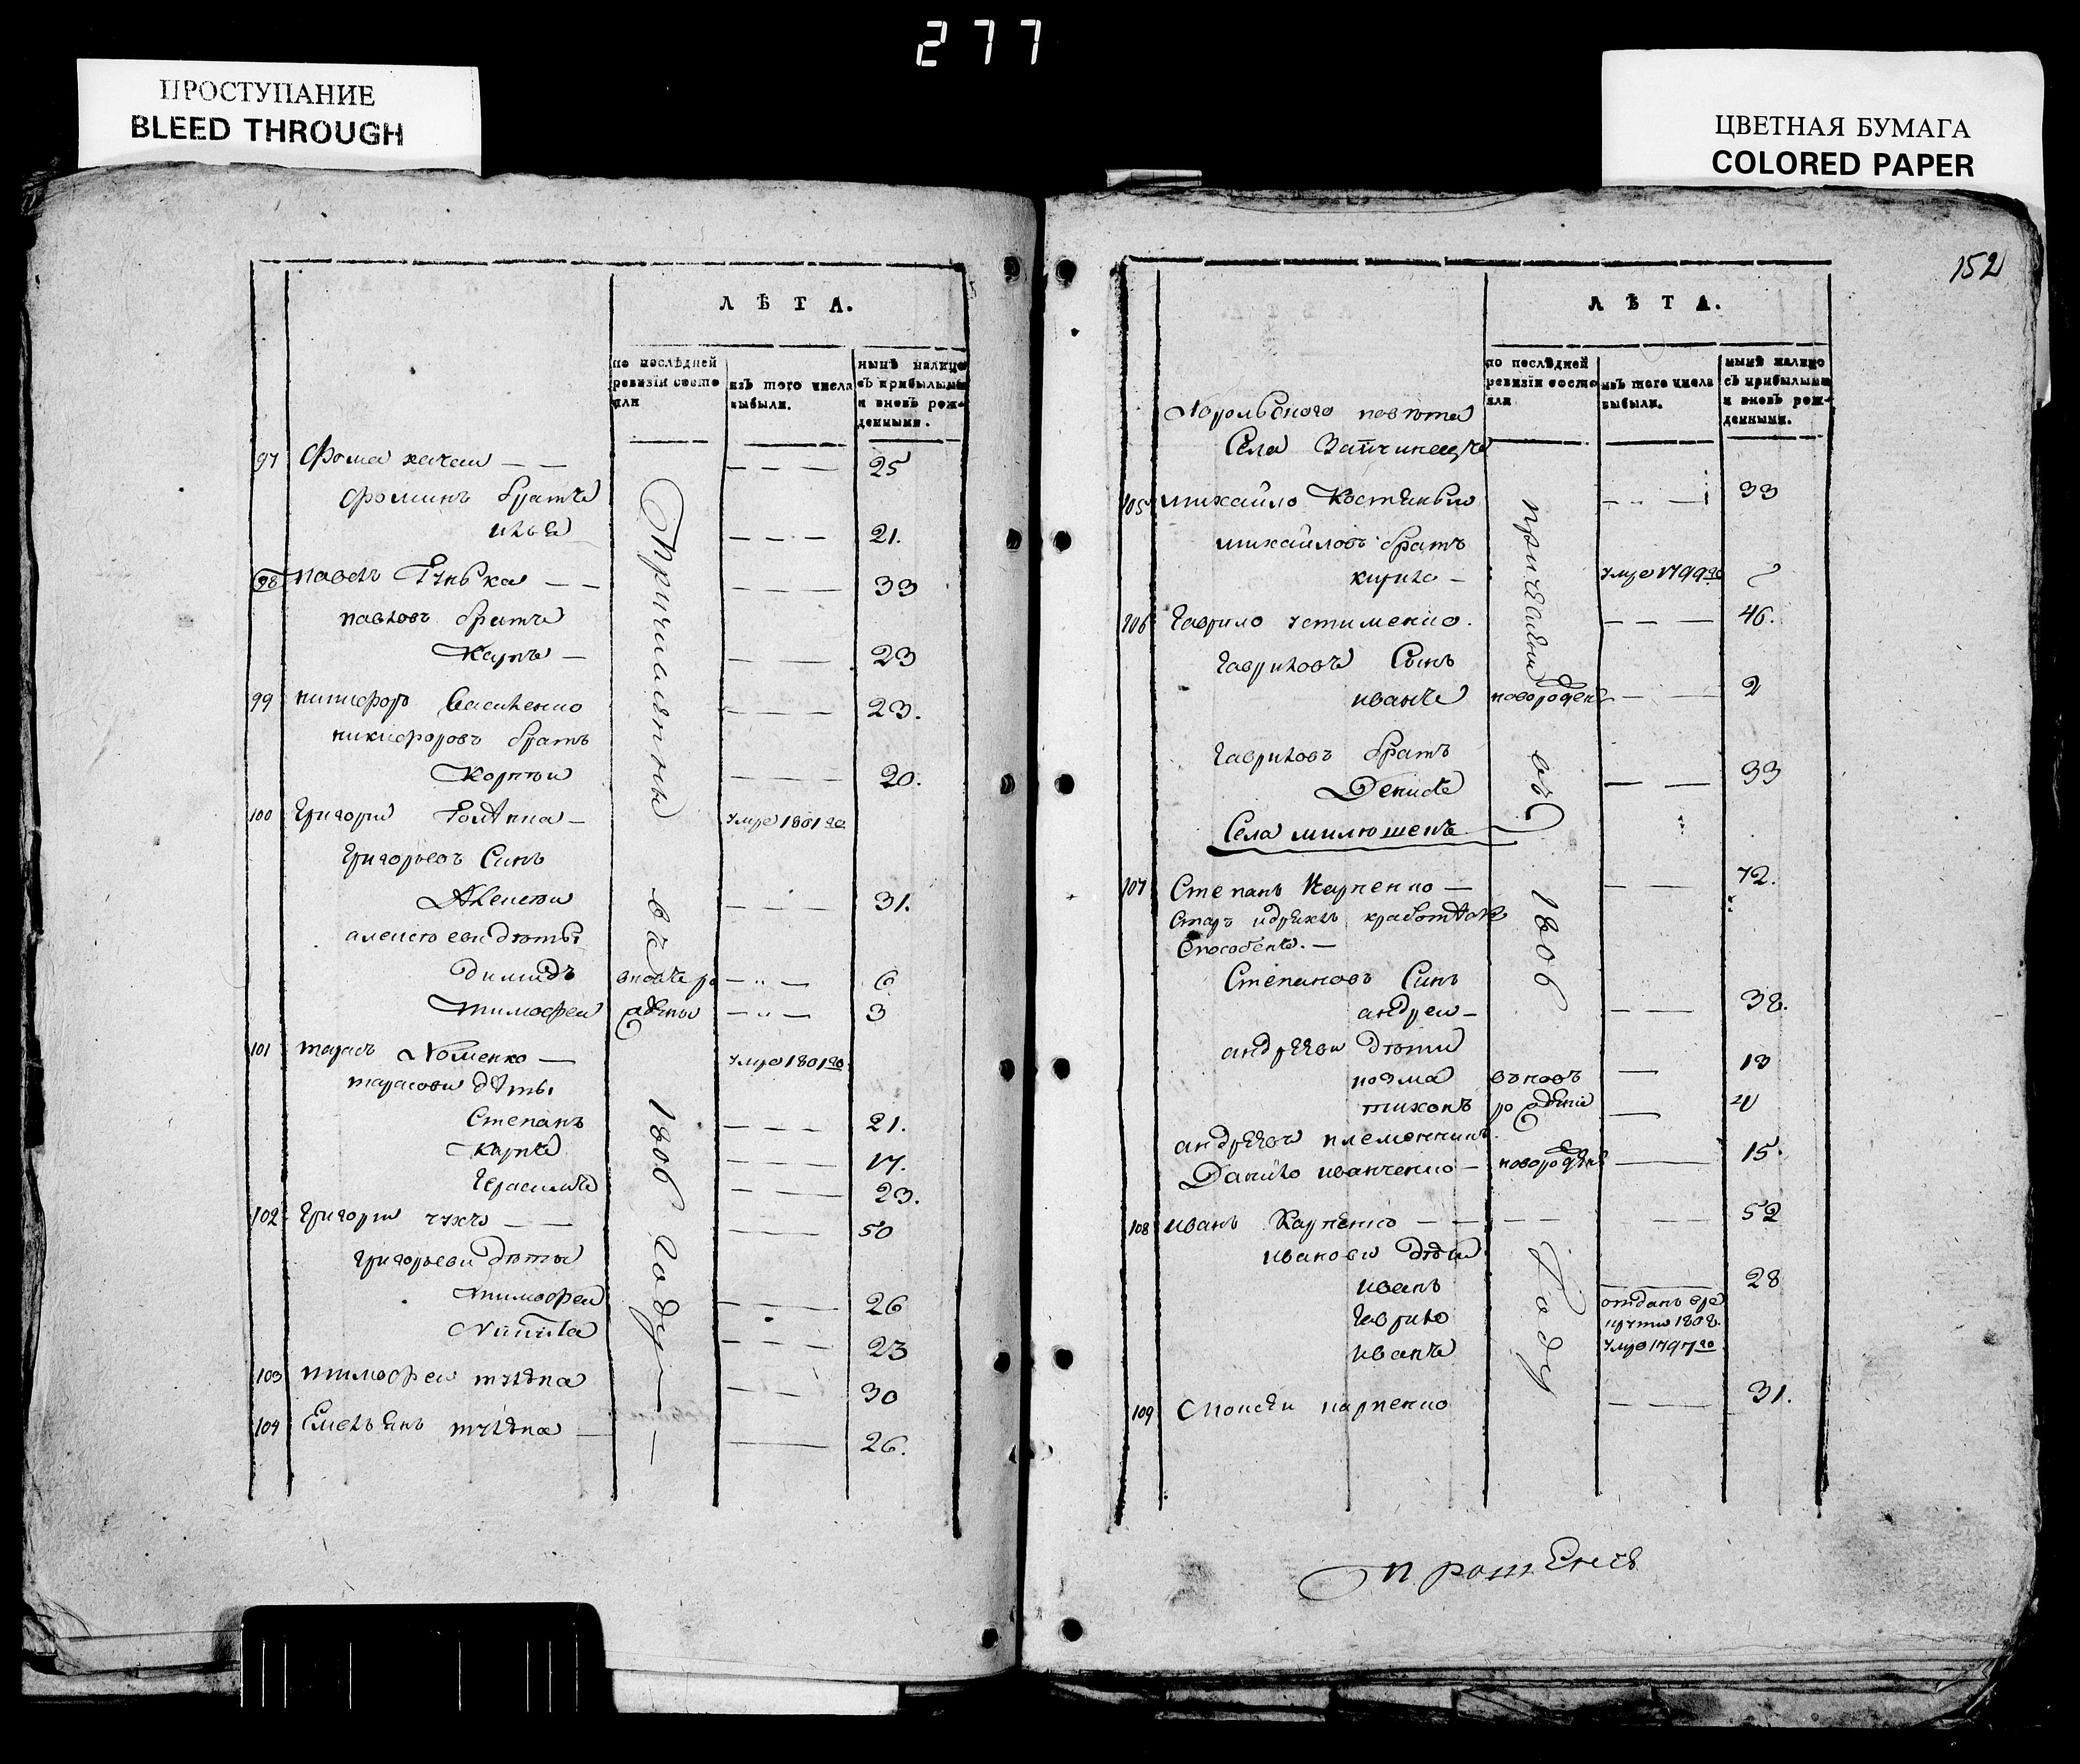 277
ПРОСТУПАНИЕ
BLEED THROUGH
ЦВЕТНАЯ БУМАГА
COLORED PAPER
Л Ѣ Т А.
по послѣдней ревизіи состояли
изъ того числа выбыли.
нынѣ налицо съ прибылыми и вновь рожденными.
97 Фома качан — — — — — 25
Фоминъ братъ
илья — — — 21.
98 павелъ — — — — — 33
павловъ братъ
Карпъ — — — 23
99 никифоръ Василенко — — — 23.
никифоровъ братъ
Корнѣи — — — 20.
100 Григори — умре 1801го
Григорьевъ Синъ
Алексѣи — — — 31.
алексѣеви дѣты
димидъ вновъ ро — — 6
тимофеи жденъы — — 3
101 тарасъ Хоменко — умре 1801го
тарасови дѣты
Степанъ — — — 21.
Карпъ — — — 17.
Герасимъ — — — 23.
102 Григори чухъ — — — — 50
Григорьеви дѣты
тимофеи — — — 26
Никита — — — 23
103 тимофеи — — — 30
104 Емельянъ — — 26.
Причислены въ 1806 году
152
Л Ѣ Т А.
по послѣдней ревизіи состояли
изъ того числа выбыли.
нынѣ налицо съ прибылыми и вновь рожденными.
Хорольского повѣта
Села
105 михайло — — — 33
михайловъ братъ
кирило — умре 1799го
106 Гаврило устименко. — — — 46.
Гавриловъ Сынъ
иванъ новорожденъ — — 2
Гавриловъ братъ
Денисъ — — 33
Села милюшекъ
107 Степанъ Карпенко — — — 72.
Старъ и дряхлъ к работѣ не
Способенъ. —
Степановъ Синъ
андреи — — — 38.
андрѣеви дѣти
козма въновъ — 13
тихонъ рожденіе — 4
андрѣевъ племенникъ
Данило иванченко — новорожденъ — 15.
108 иванъ Карпенко — — — — — — 52
иванови дѣти
иванъ — 28
Гаврило отданъ в рекруты 1808.
иванъ умре 1797го
109 Моисѣи карпенко — — 31.
причислены въ 1806 году